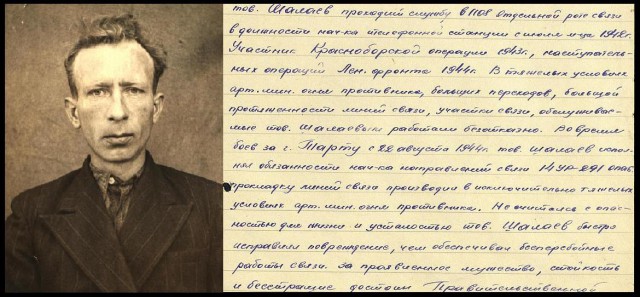 тов. Шалаев проходил службу в 1108 отдельной роте связи
в должности нач-ка телефонной станции с июля м-ца 1942г.
Участник Красноборской операции 1943г., наступатель-
ных операций Лен. фронта 1944г. В тяжелых условиях
арт. мин. огня противника, больших переходов, большой
протяженности линий связи, участки связи, обслуживае-
мые тов. Шалаевым работали безотказно. Во время
боев за г. Тарту с 22 августа 1944г. тов. Шалаев испол-
нял обязанности нач-ка направлений связи 14УР-291
прокладку линий связи производил в исключительно тяжелых
условиях арт. мин. огня противника. Не считаясь с опас-
ностью для жизни и усталостью тов. Шалаев быстро
исправлял повреждение, чем обеспечивал бесперебойные
работы связи. За проявленное мужество, стойкость
и бесстрашие достоин Правительственной